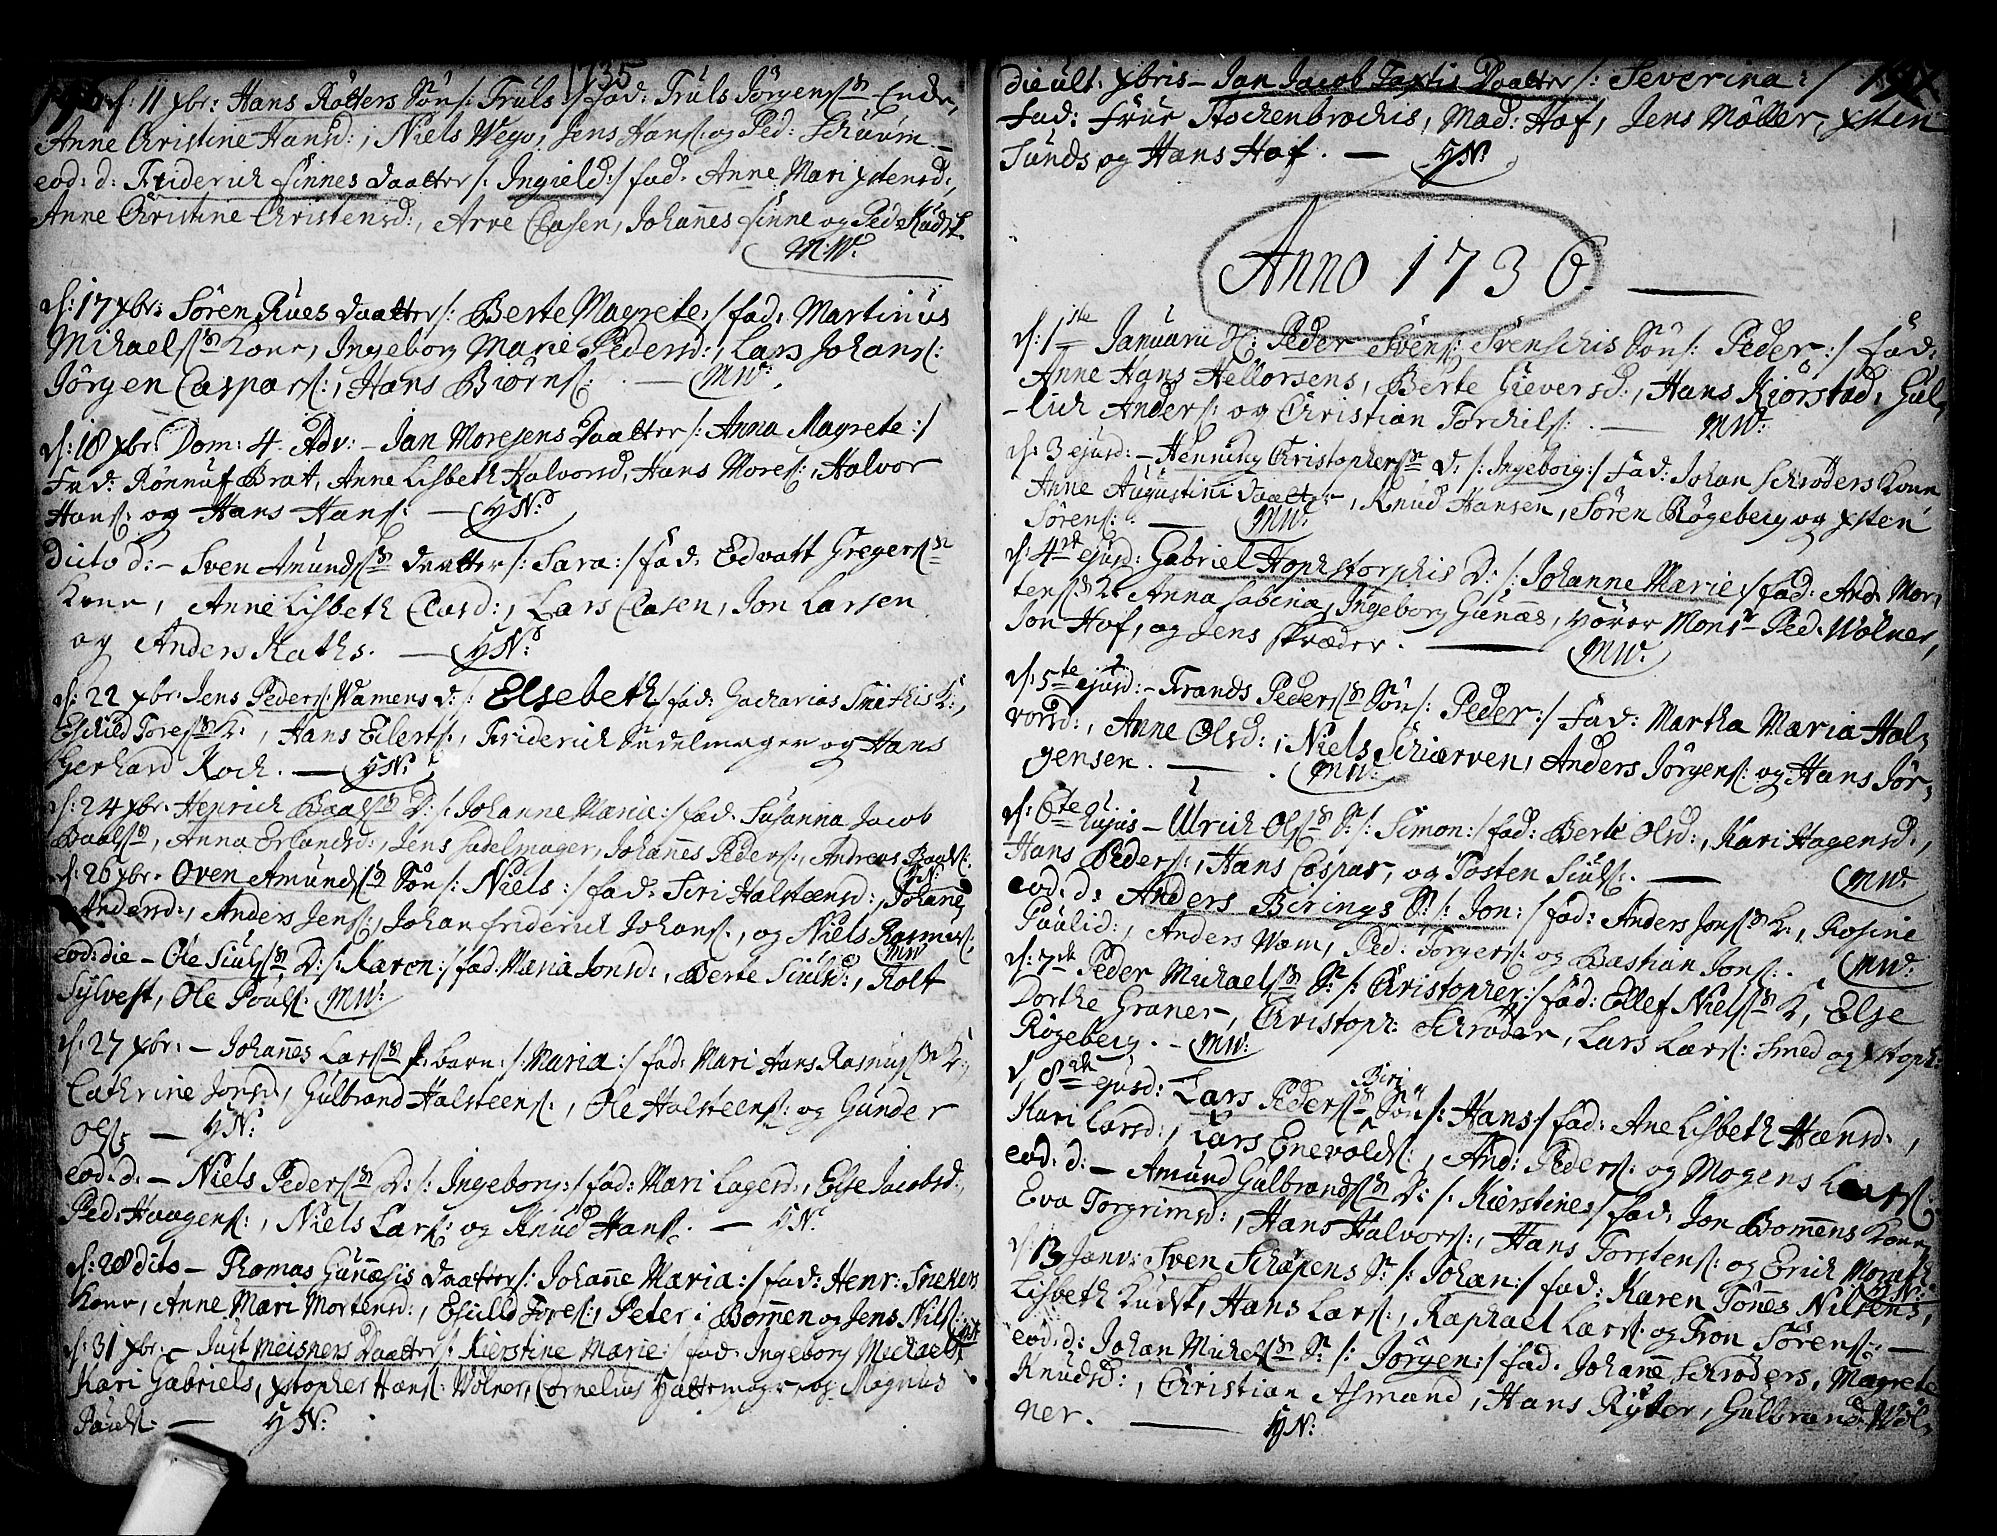 1735
d: 11 xbr: Hans Rötters Sön /: Trüls :/ fad: Trüls Jörgens:
Anne Christine Hansd:, Niels Wego, Jens Hans: og Ped:
eod: d: Friderich finnes daatter /: Ingield :/ fad: Anne Mari xstensd:,
Anne Christine Christensd:, Arve Clasen, Johannes finne og Ped:
MW:
d: 17 xbr: Sören Rües daatter /: Berte Magrete :/ fad: Martinus
Michaels: Kone, Ingeborg Marie Pedersd:, Lars Johans:
Jörgen Caspars:, Hans Biörns: — MW:
d: 18 xbr: Dom: 4 Adv: – Jan Moresens Daatter /: Anna Magrete :/
Fad: Rönnuf Brat, Anne Lisbeth Halvorsd, Hans Mores:, Halvor
Hans: og Hans Hans: — HN:
dito d: – Sven Amunds: daatter /: Sara :/ fad: Edvatt Gregers:
Kone, Anne Lisbeth Clasd:, Lars Clasen, Jon Larsen
og Anders Raths. — HN:
d: 22 xbr. Jens Peders: Wamens d: /: Elsebeth / fad: Zacharias Smithis K:,
Eschild Tores: K:, Hans Eilerts:, Friderich Sadelmager og Hans
Gerhard Koch. — HN:
d: 24 xbr. Henrich Baals: D: /: Johanne Maria :/ fad: Susanna Jacob
Baals:, Anna Erlandsd:, Jens Sadelmager, Johannes Peders:, Andreas Baals:
HN:
d: 26 xbr. Oven Amunds: Sön /: Niels :/ fad: Siri Halsteensd:, Johanne
Andersd:, Anders Jens:, Johan friderich Johans:, og Niels Rasmus:
MW
eod: die – Ole Siuls: D: /: Karen :/ fad: Maria Jonsd:, Berte Siulsd:, Rolt
Sylvest, Ole Pouls: MW:
d: 27 xbr: – Johannes Lars: barn /: Maria :/ fad: Mari Hans Rasmus: K:,
Cathrine Jonsd:, Gulbrand Halsteens:, Ole Halsteens: og Gunder
Ols: — HN:
eod: d: – Niels Peders: D: /: Ingeborg :/ fad: Mari Lagesd:, Else Jacobsd:,
Ped: Haagens:, Niels Lars: og Knud Hans. — HN:
d: 28 dito – Thomas Gunnæsis daatter /: Johanne Maria :/ fad: Henr: Snekers
Kone, Anne Mari Mortensd:, Eschild Tores:, Peter i Bommen og Jens Nils:
d: 31 xbr: – Just Meisners Daatter /: Kierstine Marie :/ fad: Ingeborg Michaels
Kari Gabriels, xstopher Hans: Wölner, Cornelius Hattemager og Magnus
Pouels: — HN:
die ult: xbris – Jan Jacob Taxtis Daatter /: Severina :/
Fad: Frue Stochenbrochis, Mad: Hof, Jens Möller, xsten
Sunds og Hans Hof. — HN:
Anno 1736.
d: 1ste Januarii : Peder Svens: Svenschis Sön /: Peder :/ fad:
Anne Hans Hellorsens, Berte Sieversd:, Hans Kiörstad, Gul,
-lich Anders: og Christian Torchils: — MW:
d: 3 ejusd: – Henning Christophers: d: /: Ingeborg :/ Fad: Johan Schröders Kone
Anne Augustini daatter, Knud Hansen, Sören Rögeberg og xsten
Sörens: — MW:
d: 4de ejusd: Gabriel Hophstorphis D: /: Johanne Marie :/ fad: And: Mor,
tens: K: Anna Sabina, Ingeborg Gunæs, Monsr Ped: Wölner,
Jon Hof, og Jens skræder. — MW:
d: 5te ejusd: – Trands Peders: Sön /: Peder :/ Fad: Martha Maria Hal,
vorsd:, Anne Olsd:, Niels Schiærven, Anders Jörgens: og Hans Jör,
gensen. — MW:
d: 6te hujus – Ulrich Ols: S: /: Simon :/ fad: Berte Olsd:, Kari Hagensd:,
Hans Peders:, Hans Caspar, og Tosten Siuls: — MW:
eod: d: Anders Birings S: /: Jon :/ fad: Anders Jons: K:, Rosine
Paulid:, Anders Wam, Ped: Torgers: og Bastian Jons: MW:
d: 7de Peder Michaels: S: /: Christopher :/ fad: Ellef Niels: K, Else
Dorthe Graner, Christoph: Schröder, Lars Lars: Smed og xstoph:
Rögeberg. – MW:
d 8de ejusd: Lars Peders: Biri Sön /: Hans :/ fad: Ane Lisbeth Hansd:,
Kari Larsd:, Lars Enevolds:, And: Peders: og Mogens Lars:
eod: d: – Amund Gulbrands: D: /: Kierstine :/ fad: Jon Bommens Kone,
Eva Torgrimsd:, Hans Halvors:, Hans Torstens: og Erich
HN:
d: 13 Janv: Sven Schöyens S: /: Johan :/ fad: Karen Tönnes Nilsens,
Lisbeth Kudsk, Hans Lars:, Raphael Lars: og Tron Sörens: —
eod: d: Johan Michels: S: /: Jörgen :/ fad: Johanne Schröders, Magrete
Knudsd:, Christian Asmand, Hans Ryter, Gulbrand Wöl,
ner. — HN: